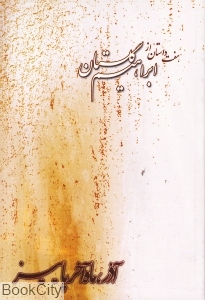 هفت داستان از
ابراهیم گلستان
آذر، ماه آخر پاییز
BookCity